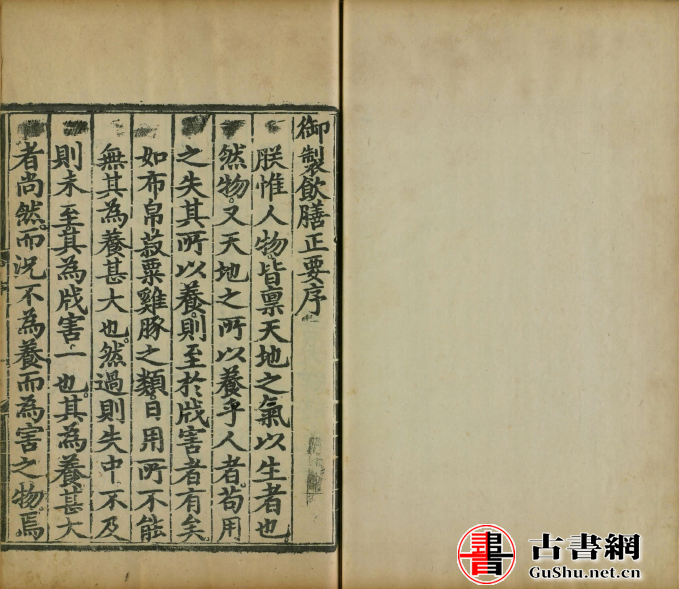 御製飲膳正要序
朕惟人物皆禀天地之氣以生者也
然物又天地之所以養乎人者苟用
之失其所以養則至於戕害者有矣
如布帛菽粟雞豚之類日用所不能
無其為養甚大也然過則失中不及
則未至其為戕害一也其為養甚大
者尚然而況不為養而為害之物焉
古書網
GuShu.net.cn